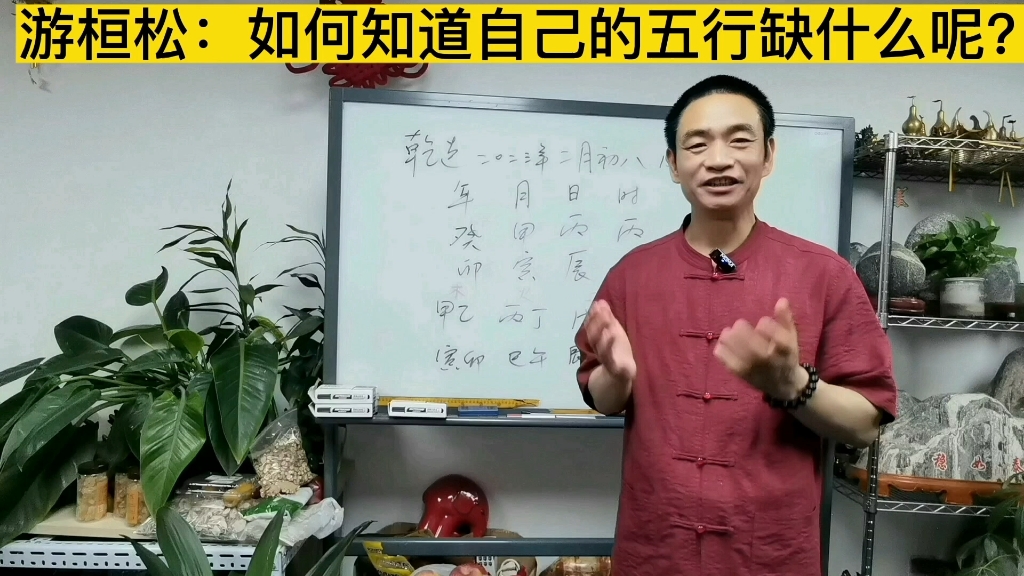 游桓松：如何知道自己的五行缺什么呢？
乾造 二〇二三年 二月初八
年 月 日 时
癸 甲 丙 丙
卯 寅 辰
甲乙 丙丁
寅卯 巳午